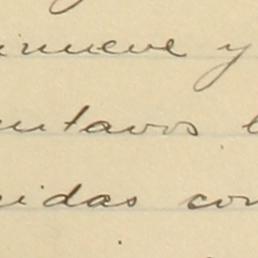 inueve y
entavos
idas con